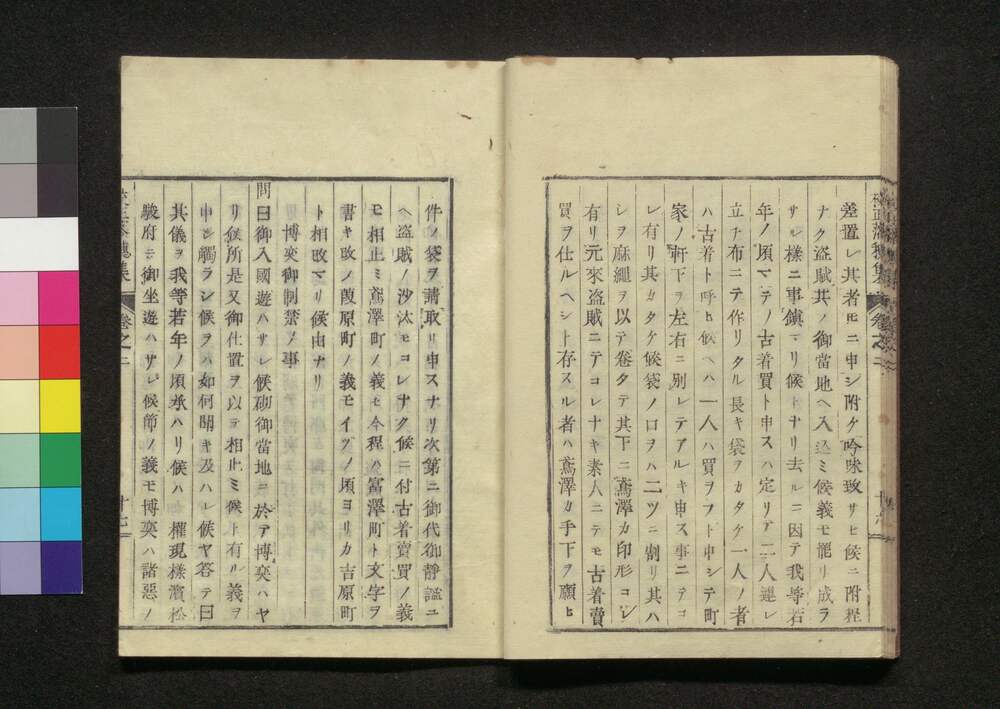 差置レ其者モニ申シ附ケ吟味致サセ候ニ附程
ナク盗賊其ノ御當地ヘ入込ミ候義モ罷リ成ラ
サル樣ニ事鎭マリ候トナリ去ルニ因テ我等若
年ノ頃マテノ古着買ト申スハ定リテ二人連レ
立チ布ニテ作リタル長キ袋ヲカタケ一人ノ者
ハ古着ト呼ヒ候ヘハ一人ハ買ヲフト申シテ町
家ノ軒下ヲ左右ニ別レテアルキ申ス事ニテコ
レ有リ其カタケ候袋ノ口ヲハ二ツニ割リ其ハ
シヲ麻繩ヲ以テ卷タテ其下ニ鳶澤カ印形コレ
有リ元來盗賊ニテコレナキ素人ニテモ古着賣
買ヲ仕ルヘシト存スル者ハ鳶澤カ手下ヲ願ヒ
件ノ袋ヲ請取リ申スナリ次第ニ御代御靜謐ニ
ヘ盗賊ノ沙汰モコレナク候ニ付古着賣買ノ義
モ相止ミ鳶澤町ノ義モ今程ハ富澤町ト文字ヲ
書キ改ノ葭原町ノ義モイツノ頃ヨリカ吉原町
ト相改マリ候由ナリ
博奕御制禁ノ事
問曰御入國遊ハサレ候砌御當地ニ於テ博奕ハヤ
リ候所是又御仕置ヲ以テ相止ミ候ト有ル義ヲ
申シ觸ラシ候ヲハ如何聞キ及ハレ候ヤ答テ曰
其儀ヲ我等若年ノ頃承ハリ候ハ權現樣濱松
駿府ニ御坐遊ハサレ候節ノ義モ博奕ハ諸惡ノ
卷之二